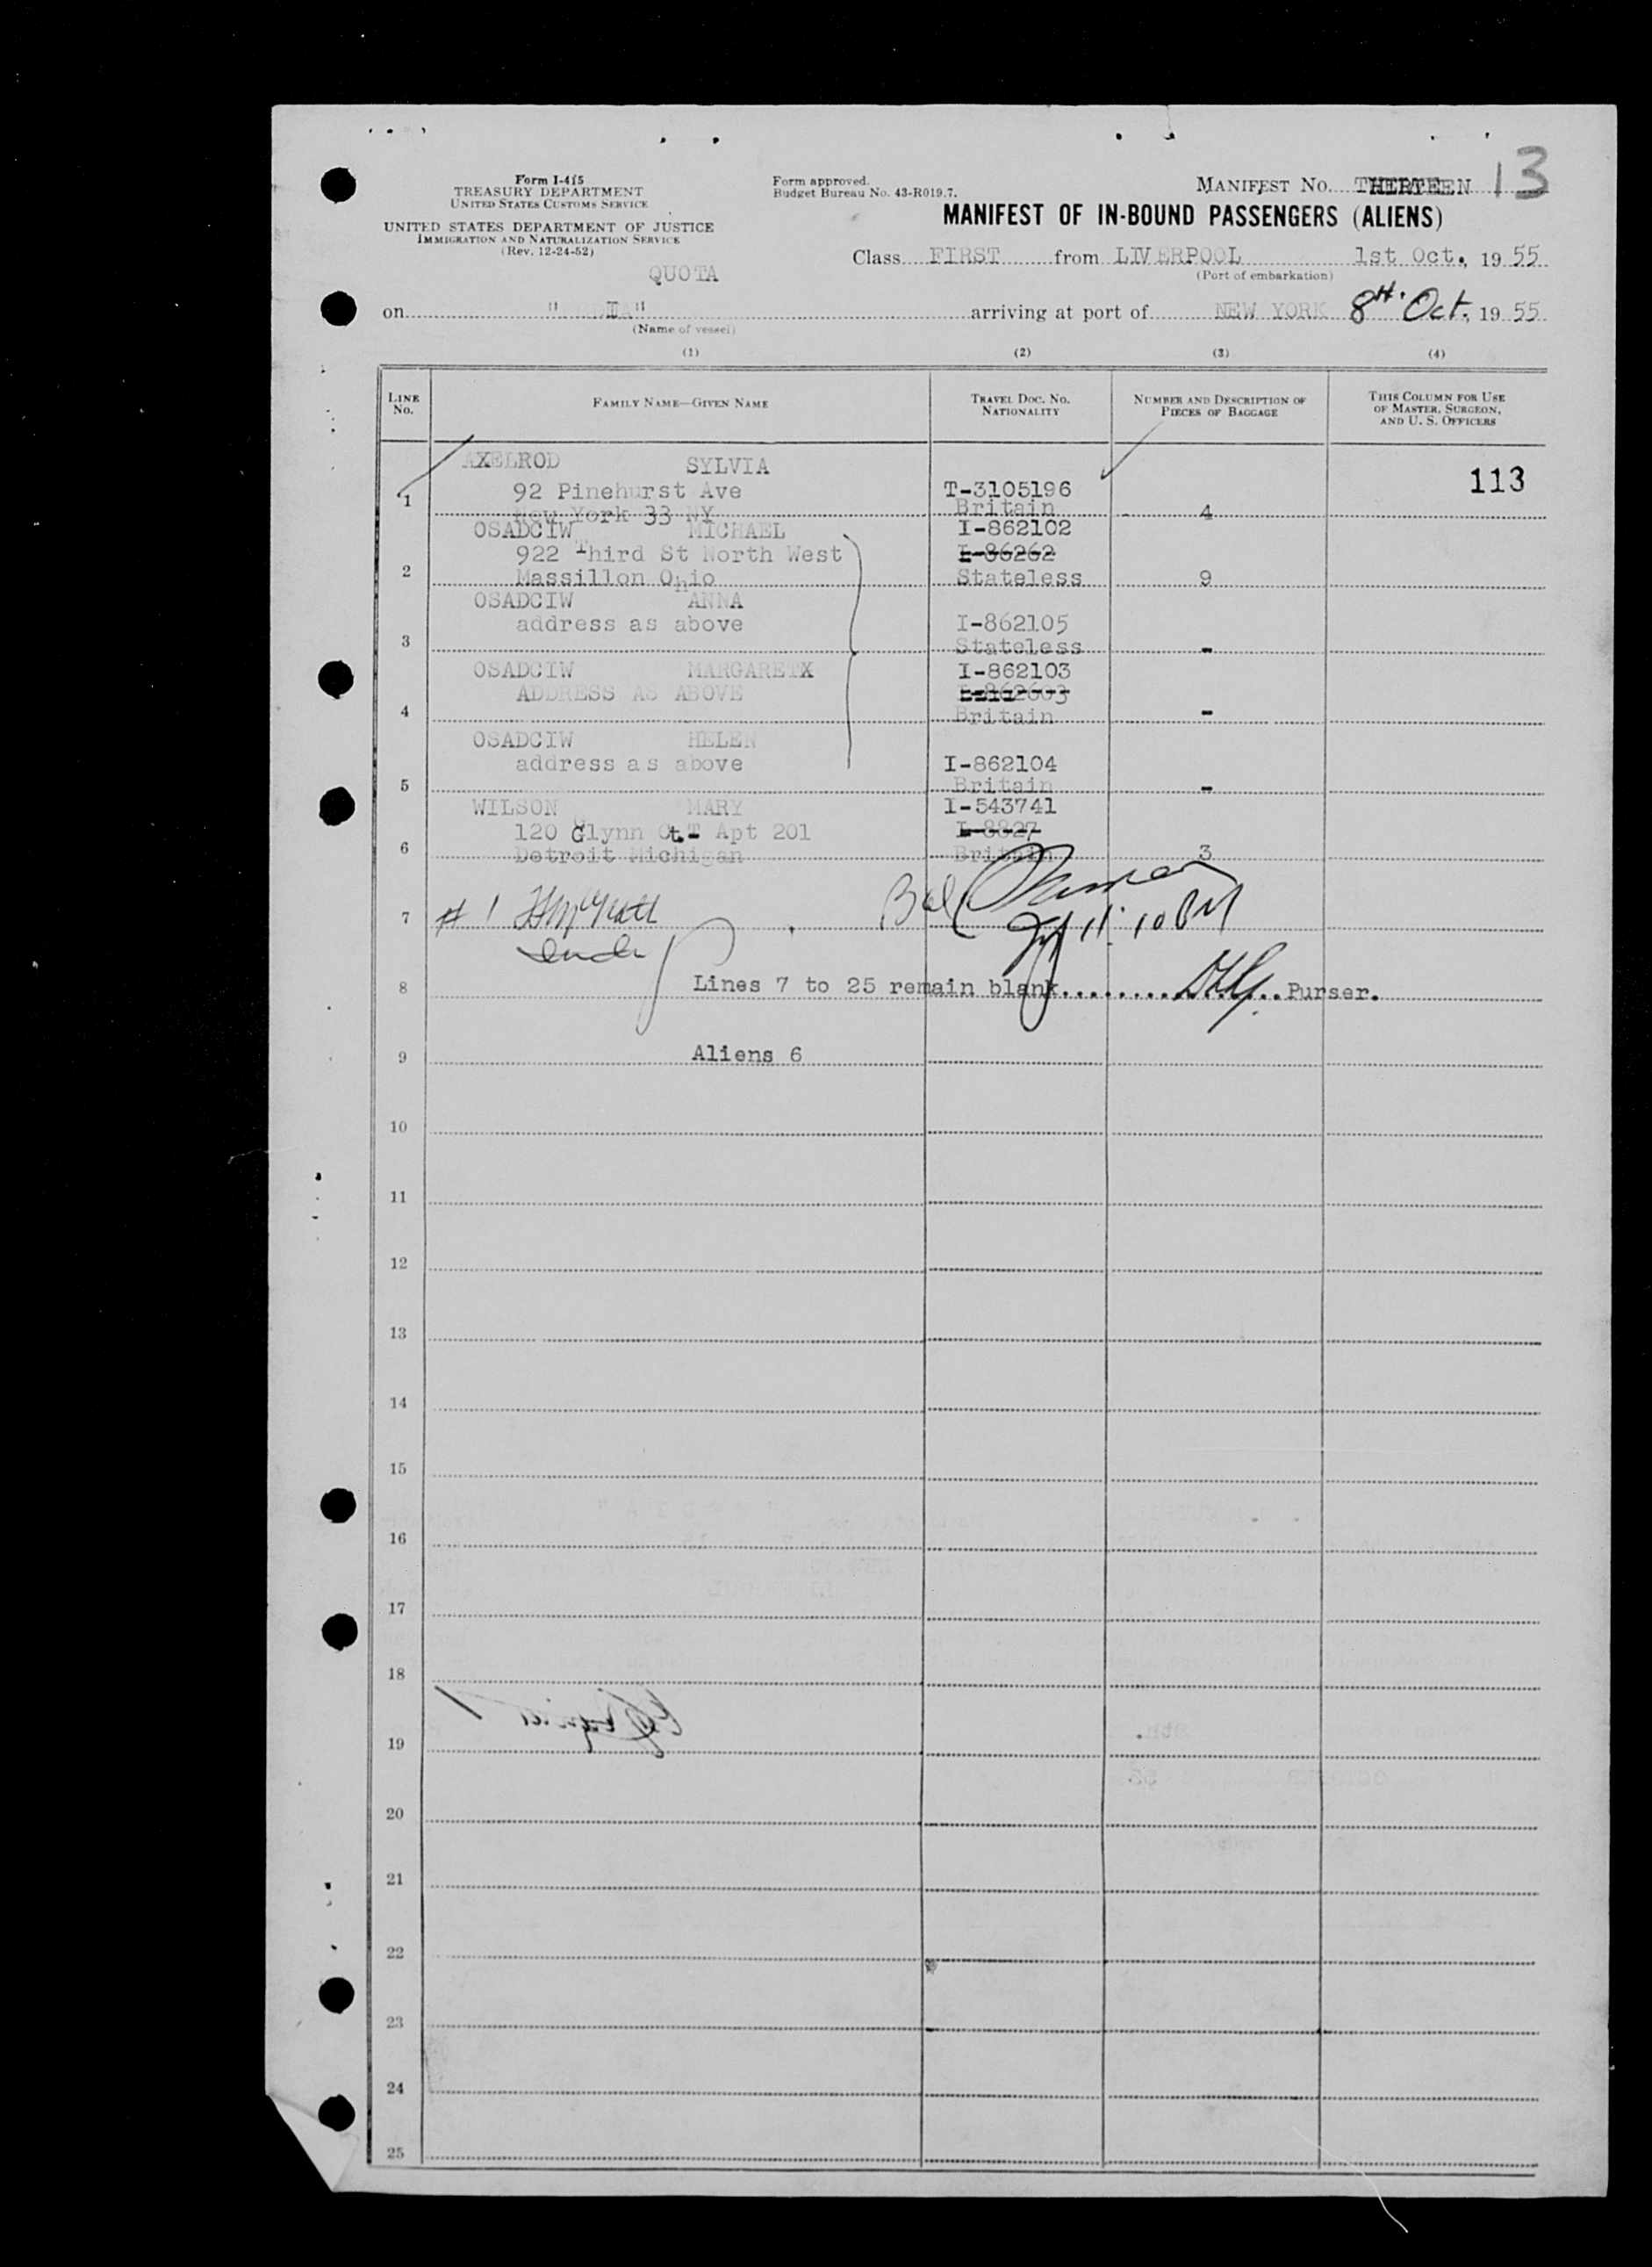 Form I-415
TREASURY DEPARTMENT
UNITED STATES CUSTOMS SERVICE
UNITED STATES DEPARTMENT OF JUSTICE
IMMIGRATION AND NATURALIZATION SERVICE
(Rev. 12-24-52)
Form approved.
Budget Bureau No. 43-R019.7.
MANIFEST NO. THIRTEEN 13
MANIFEST OF IN-BOUND PASSENGERS (ALIENS)
Class FIRST from LIVERPOOL 1st Oct., 1955
(Port of embarkation)
QUOTA
on arriving at port of NEW YORK 8th. Oct., 1955
(Name of vessel)
(1) (2) (3) (4)
LINE No. FAMILY NAME—GIVEN NAME TRAVEL DOC. NO. NATIONALITY NUMBER AND DESCRIPTION OF PIECES OF BAGGAGE THIS COLUMN FOR USE OF MASTER, SURGEON, AND U. S. OFFICERS
AXELROD SYLVIA 113
1 92 Pinehurst Ave T-3105196
New York 33 NY Britain 4
OSADCIW MICHAEL I-862102
922 Third St North West I-86262
2 Massillon Ohio Stateless 9
OSADCIW ANNA
address as above I-862105
3 Stateless -
OSADCIW MARGARETX I-862103
ADDRESS AS ABOVE I-862603
4 Britain -
OSADCIW HELEN
address as above I-862104
5 Britain -
WILSON MARY I-543741
120 Glynn Ct- Apt 201 I-8827
6 Detroit Michigan Britain 3
7 # 1 11:10 PM
8 Lines 7 to 25 remain blank.................Purser.
9 Aliens 6
10
11
12
13
14
15
16
17
18
19
20
21
22
23
24
25